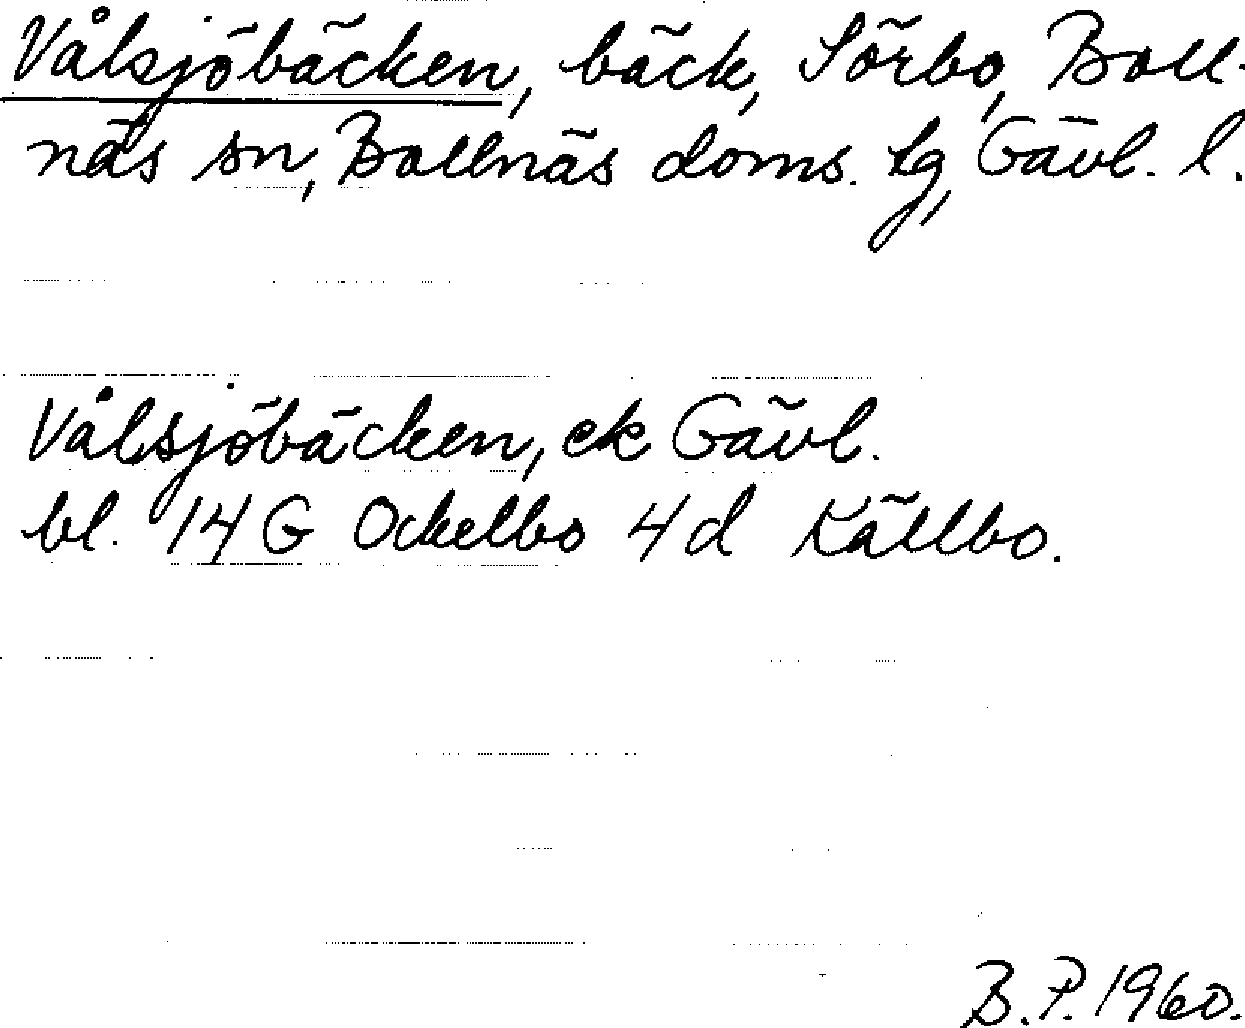 Vålsjöbäcken, bäck, Sörbo, Boll-
näs sn, Bollnäs doms. tg, Gävl. l.
Vålsjöbäcken, ek Gävl.
bl. 14 G Ockelbo 4 d Källbo.
B. P. 1960.